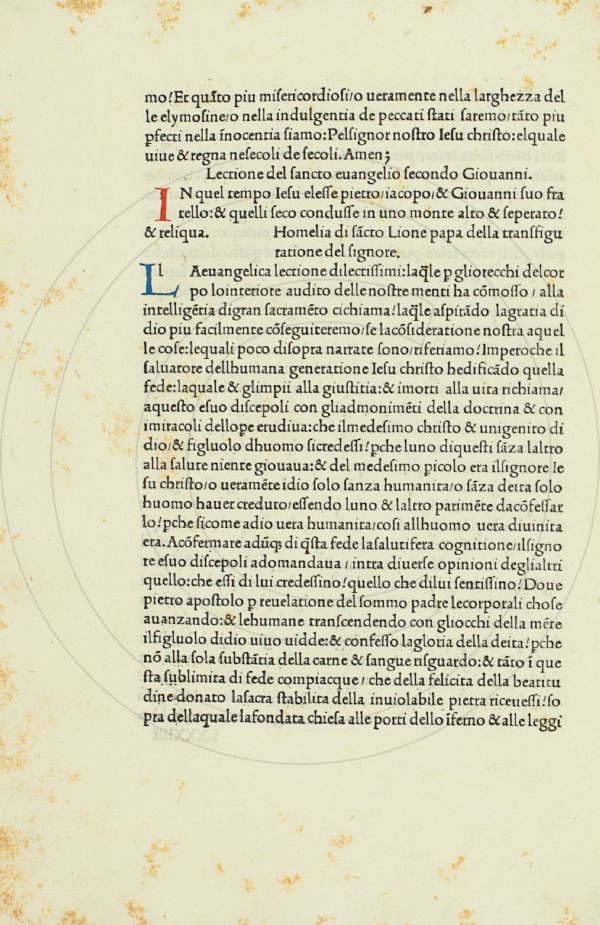 mo!Et quãto piu misericordiosi/o ueramente nella larghezza del
le elymosine/o nella indulgentia de peccati stati saremo/tãto piu
pfecti nella ĩnocentia siamo:Pelsignor nostro Iesu christo:elquale
uiue & regna nesecoli de secoli.Amen;
Lectione del sancto euangelio secondo Giouanni.
IN quel tempo Iesu elesse pietro/iacopo/& Giouanni suo fra
tello:& quelli seco condusse in uno monte alto & seperato!
& reliqua. Homelia di sãcto Lione papa della transfigu
ratione del signore.
LAeuangelica lectione dilectissimi:laq̃le p gliorecchi delcor
po lointeriore audito delle nostre menti ha cõmosso / alla
intelligẽtia digran sacramẽto cichiama!laq̃le aspirãdo lagratia di
dio piu facilmente cõseguiteremo/se lacõsideratione nostra aquel
le cose:lequali poco disopra narrate sono/riferiamo!Imperoche il
saluatore dellhumana generatione Iesu christo hedificãdo quella
fede:laquale & glimpii alla giustitia:& imorti alla uita richiama/
aquesto esuo discepoli con gliadmonimẽti della doctrina & con
imiracoli dellope erudiua:che ilmedesimo christo & unigenito di
dio/& figluolo dhuomo sicredessi!pche luno diquesti sãza laltro
alla salute niente giouaua:& del medesimo picolo era ilsignore Ie
su christo/o ueramẽte idio solo sanza humanita/o sãza deita solo
huomo hauer creduto/essendo luno & laltro parimẽte dacõfessar
lo!pche sicome adio uera humanita/cosi allhuomo uera diuinita
era.Acõfermare adũq; di q̃sta fede lasalutifera cognitione/ilsigno
re esuo discepoli adomandaua / intra diuerse opinioni deglialtri
quello:che essi di lui credessino!quello che dilui sentissino!Doue
pietro apostolo p reuelatione del sommo padre lecorporali chose
auanzando:& lehumane transcendendo con gliocchi della mẽte
ilfigluolo didio uiuo uidde:& confesso lagloria della deita!pche
nõ alla sola substãtia della carne & sangue risguardo:& tãto ĩ que
sta sublimita di fede compiacque / che della felicita della beatitu
dine donato lasacra stabilita della inuiolabile pietra riceuessi!so
pra dellaquale lafondata chiesa alle porti dello ĩferno & alle leggi